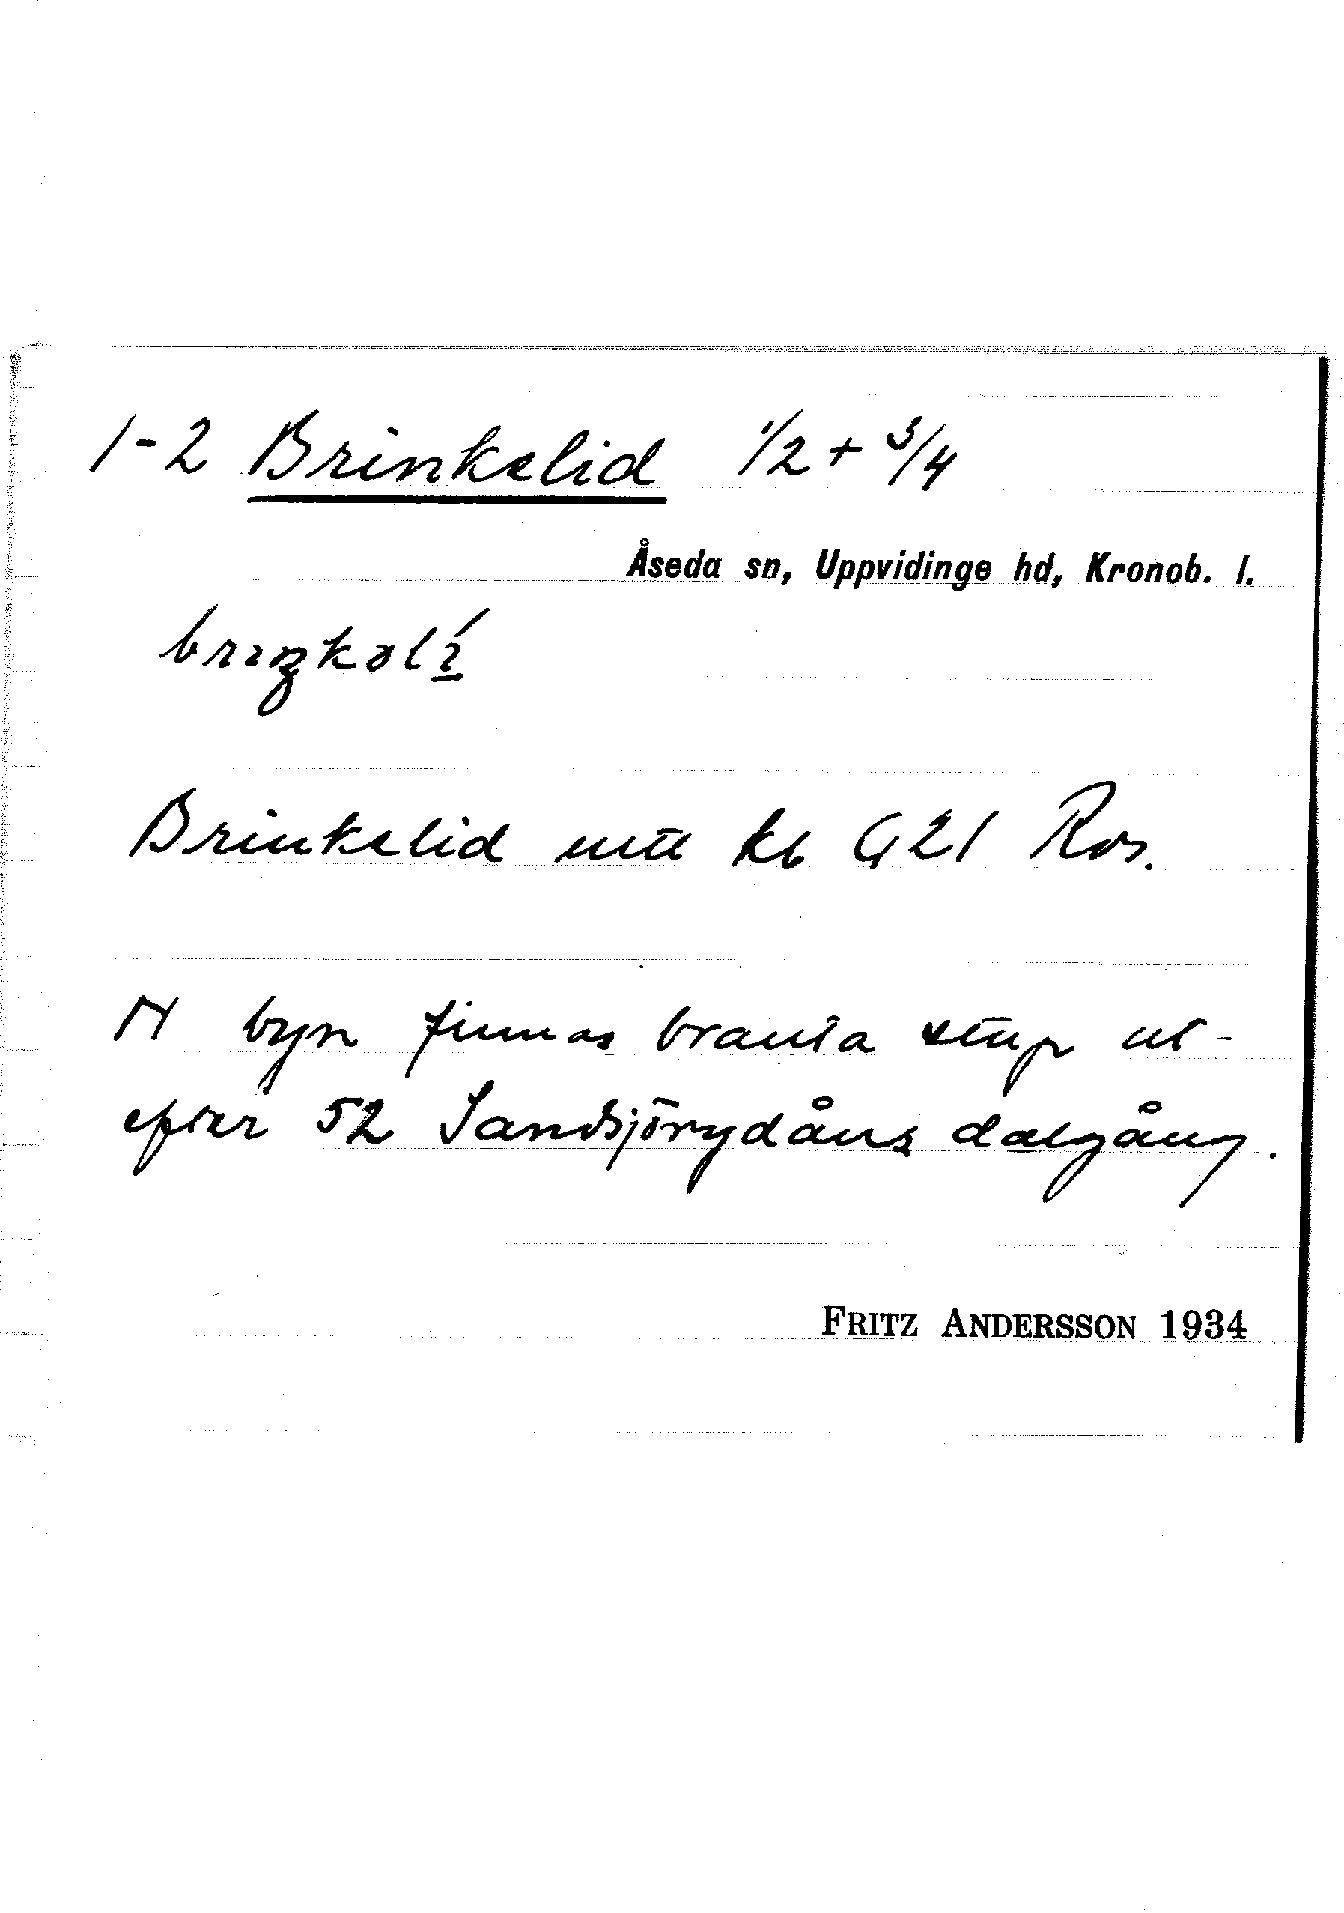 1-2 Brinkelid 1/2 + 3/4
Åseda sn, Uppvidinge hd, Kronob. l.
briŋkəlí
Brinkelid mtl kb G21 Ros.
N byn finnas branta stup ut-
efter 52 Sandsjörydåns dalgång.
FRITZ ANDERSSON 1934